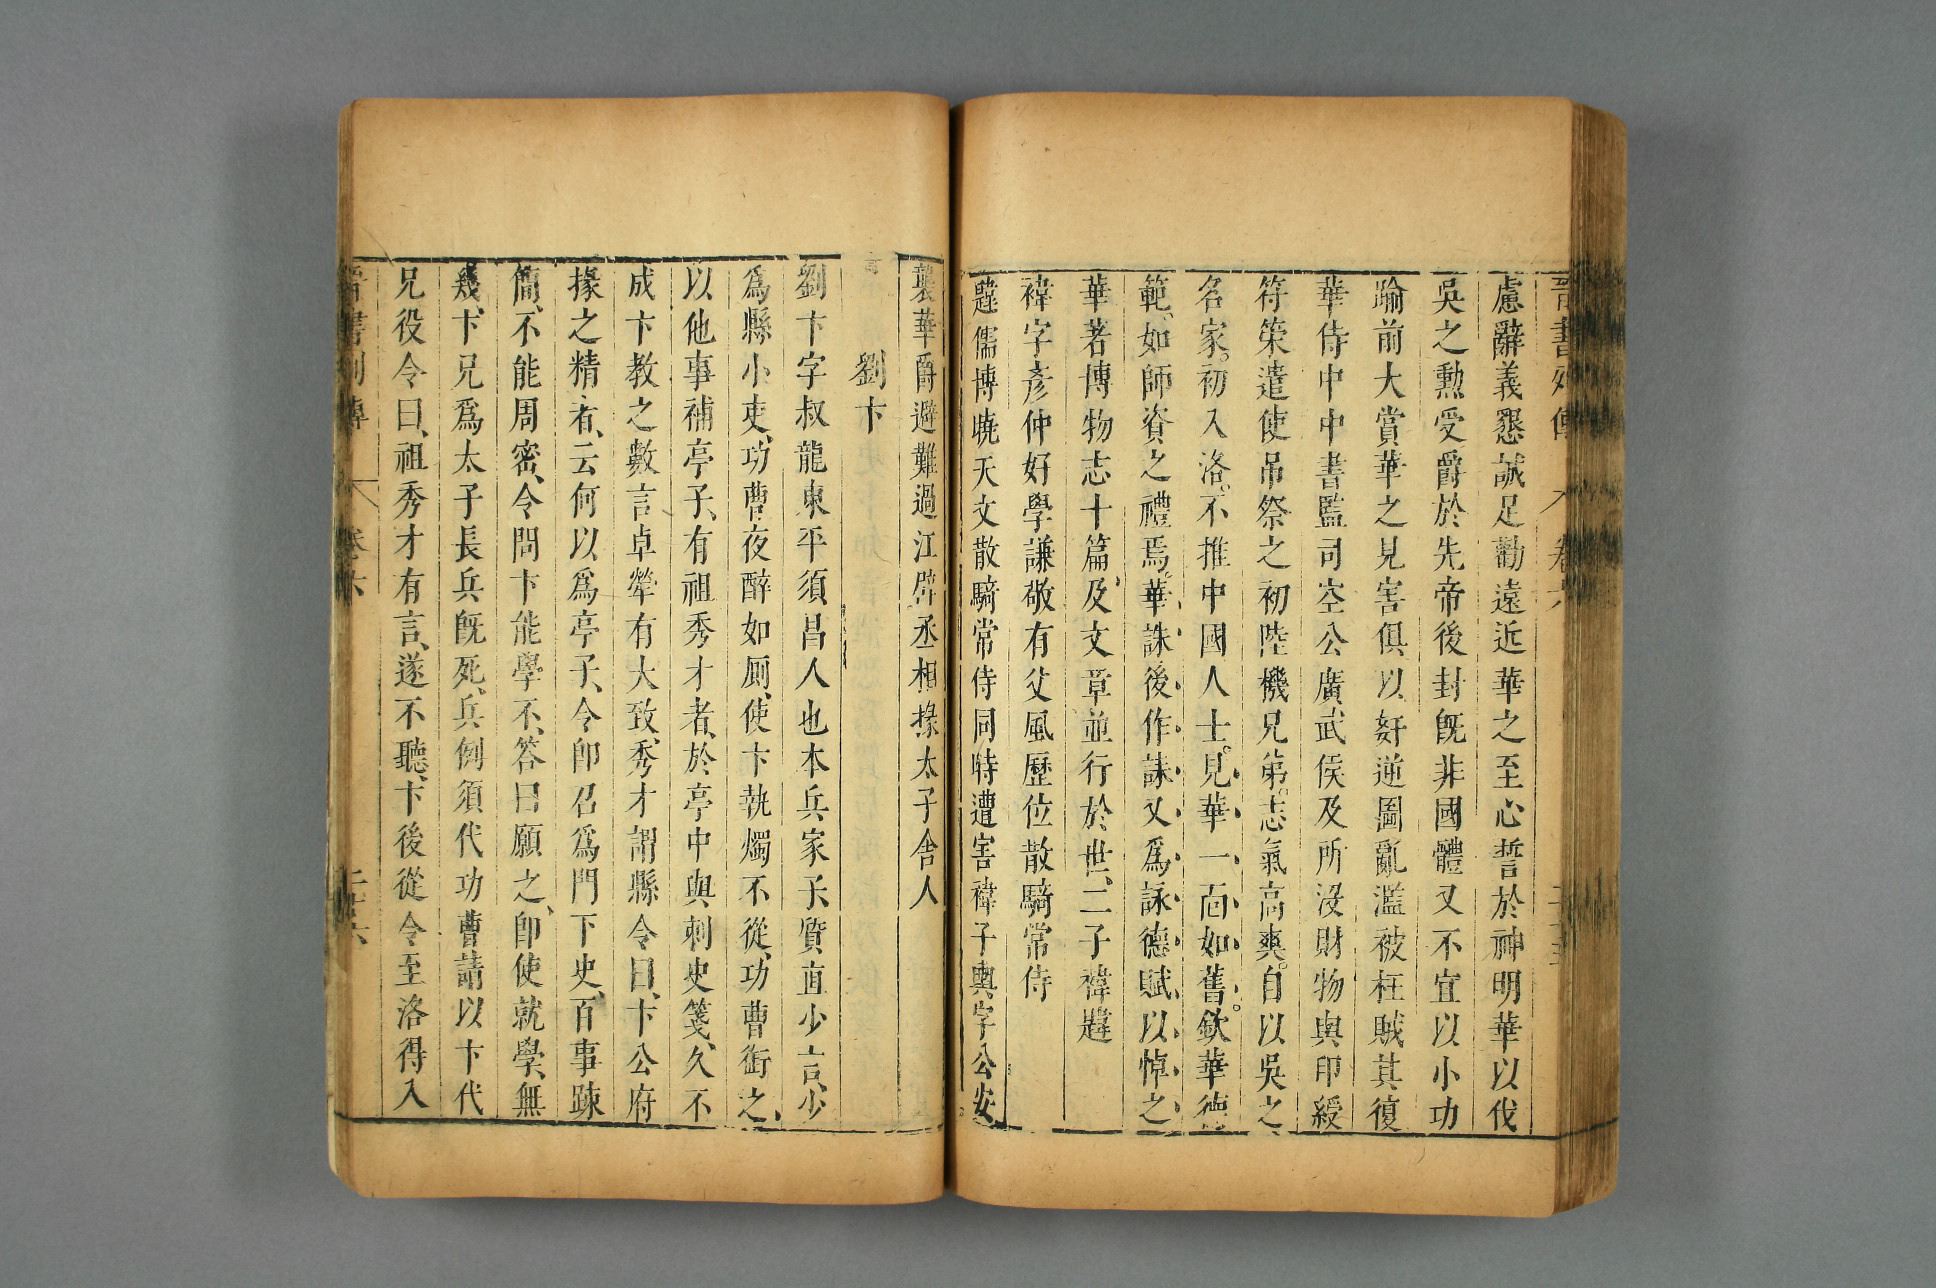 晉書列傳 卷六 二十五
慮辭義懇誠足勸遠近華之至心誓於神明華以伐
吳之勲受爵於先帝後封旣非國體又不宜以小功
踰前大賞華之見害俱以奸逆圖亂濫被枉賊其復
華侍中中書監司空公廣武侯及所没財物與印綬
符策遣使吊祭之初陸機兄弟。志氣高爽。自以吳之
名家。初入洛。不推中國人士。見華一面如舊。欽華德
範、如師資之禮焉。華誅後作誄又爲詠德賦以悼之
華著博物志十篇、及文章並行於世、二子禕韙
禕字彥仲好學謙敬有父風歷位散騎常侍
韙儒博曉天文散騎常侍同時遭害禕子輿字公安。
襲華爵避難過江辟丞相掾太子舍人
劉卞
劉卞字叔龍東平須昌人也本兵家子質直少言、少
爲縣小吏、功曹夜醉如厠、使卞執燭不從、功曹銜之、
以他事補亭子、有祖秀才者、於亭中與刺史箋、久不
成卞教之數言卓犖有大致、秀才謂縣令曰、卞公府
掾之精者、云何以爲亭子、令卽召爲門下史、百事踈
簡、不能周密、令問卞能學不、答曰願之、卽使就學、無
幾、卞兄爲太子長兵旣死、兵例須代功曹請以卞代
兄役令曰、祖秀才有言、遂不聽、卞後從令至洛得入
晉書列傳 卷六 二十六